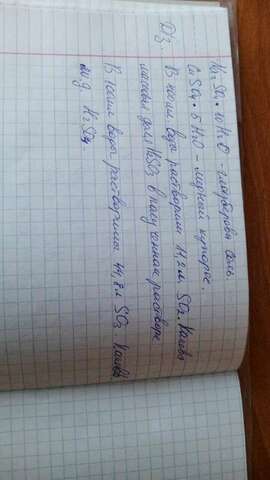 Na2SO4 · 10 H2O - глауберова соль.
CuSO4 · 5 H2O - медный купорос.
Дз
В воды растворили 11,2 л. SO2. Каковы
массовая доля H2SO3 в полученном растворе
В воды растворили 44,8 л SO3. Какова
м. g. H2SO4.